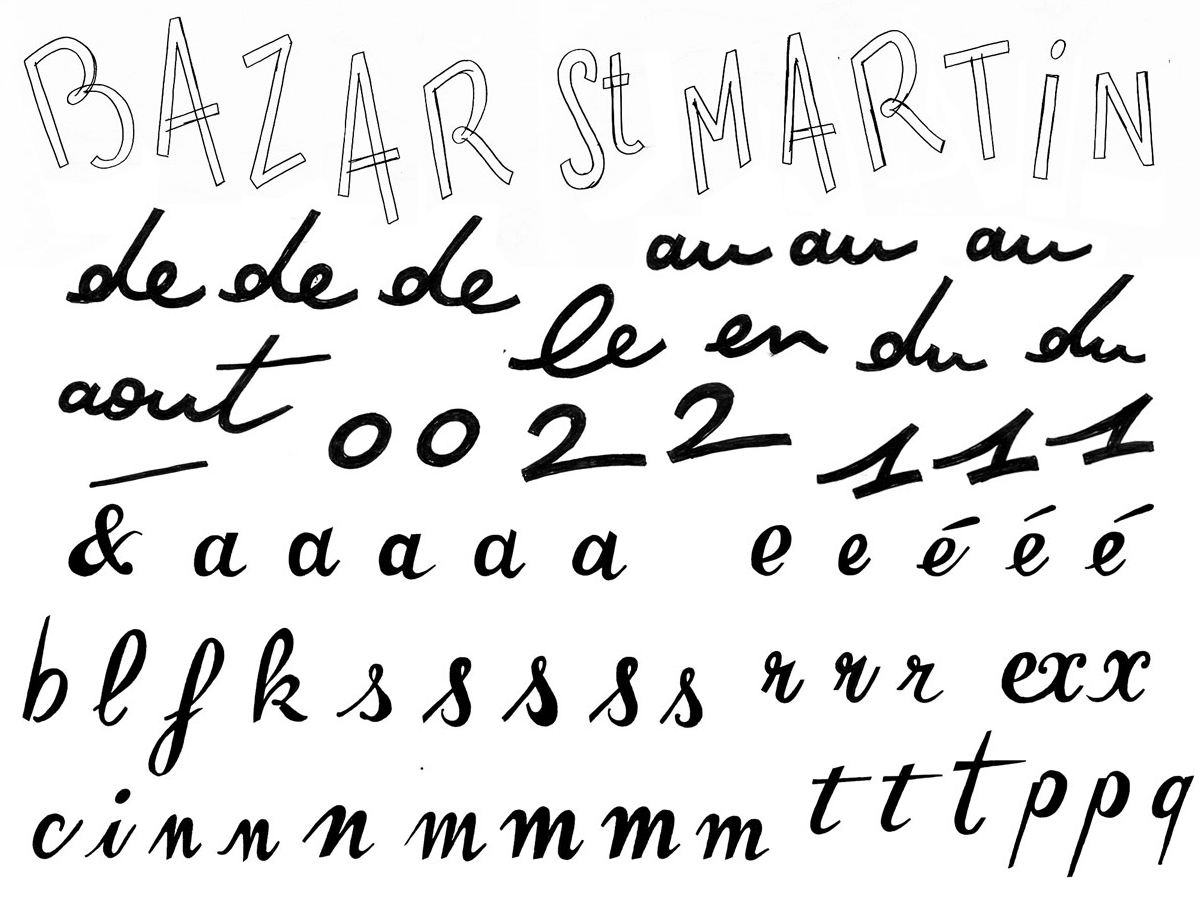 BAZAR St MARTiN
de de de au au au
le en du du
aout 0 0 2 2 1 1 1
& a a a a a e e é é é
b l f k s s s s s r r r ex x
c i n n n m m m m t t t p p q